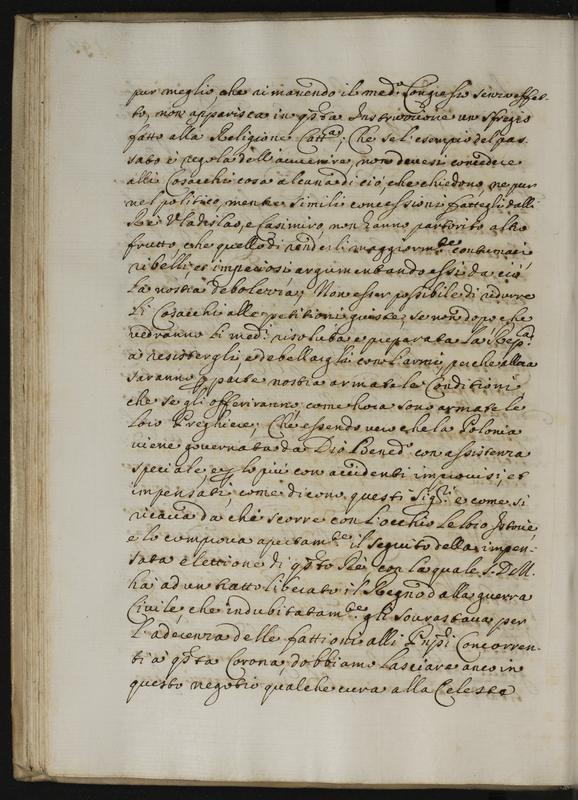 pur meglio che rimanendo il med.º Congresso senza effet-
to, non apparisca in q̃sta Instruttione un sfregio
fatto alla Religione Catt.ca; Che se l'esempio del pas-
sato è regola dell'auuenire, non deuesi concedere
alli Cosacchi cosa alcuna di ciò, che chiedono, ne pur
nel politico, mentre simili concessioni fattegli dalli
Rè Vladislao, e Casimiro, non hanno partorito altro
frutto, che quello di renderli maggiorm.te contumaci
ribelli, et imperiosi argumentando essi da ciò
la nostra debolezza; Non esser possibile di ridurre
li Cosacchi alle petitioni giuste, se non dopo che
vedranno li med.i risoluta e preparata la Rep.ca
a resistergli, e debellargli con l'armi, perche allora
saranno p parte nostra armate le Conditioni
che se gli offeriranno, come hora sono armate le
loro Preghiere; Che essendo vero che la Polonia
viene gouernata da Dio Bened.º con assistenza
speciale, e p lo più con accidenti improuisi, et
impensati, come dicono questi Sig.ri e come si
ricaua da chi scorre con l'occhio le loro Istorie,
e lo comproua apertam.te il seguito della impen-
sata elettione di q̃sto Rè, con la quale S. D. M.
hà ad un tratto liberato il Regno dalla guerra
Ciuile, che indubitatam.te gli sourastaua per
l'aderenza delle fattioni alli Pnp̃i Concorren-
ti a q̃sta Corona, dobbiamo lasciare anco in
questo negotio qualche cura alla Celeste